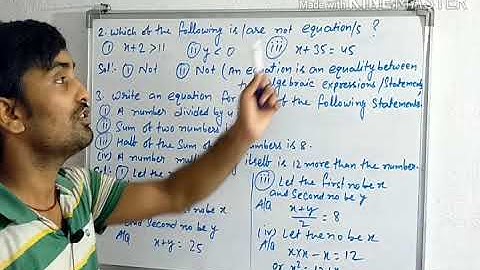 Made With KINEMASTER
2. Which of the following is/are not equation/s ?
(i) x+2>11 (ii) y<0 (iii) x+35=45
Sol:- (i) Not (ii) Not (An equation is an equality between
algebraic expressions/statements
3. Write an equation for of the following statements.
(i) A number divided by 4
(ii) Sum of two numbers
(iii) Half of the Sum of numbers is 8.
(iv) A number itself is 12 more than the number.
Sol:- (i) Let
no be x
and Second no be y
A/Q x+y = 25
(iii) Let the first no be x
and Second no be y
A/Q x+y/2 = 8
(iv) Let the no be x
A/Q x×x - x = 12
or